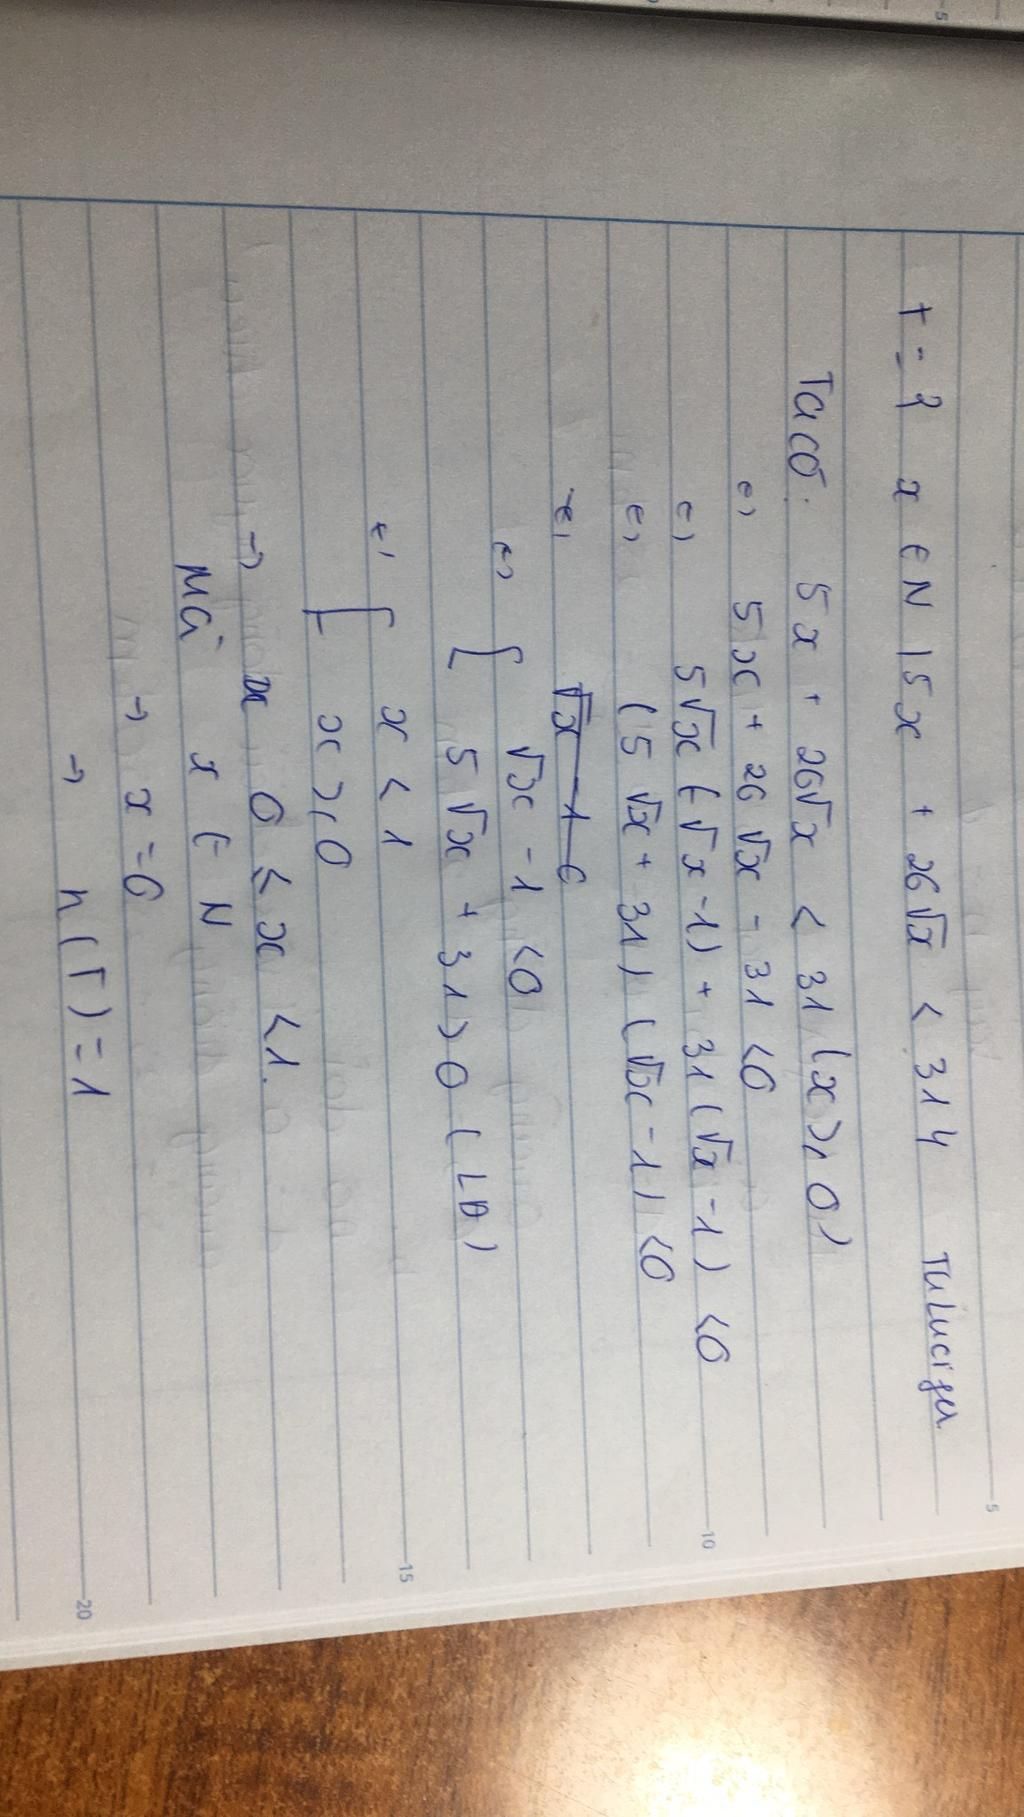 T = { x ∈ N | 5x + 26√x < 31 }
Ta có: 5x + 26√x < 31 (x ≥ 0)
⇔ 5x + 26√x - 31 < 0
⇔ 5√x (√x - 1) + 31 (√x - 1) < 0
⇔ (5√x + 31) (√x - 1) < 0
⇔ [ √x - 1 < 0
5√x + 31 > 0 (LĐ)
⇔ [ x < 1
x ≥ 0
→ 0 ≤ x < 1.
Mà x ∈ N
→ x = 0
→ n(T) = 1
5
10
15
20